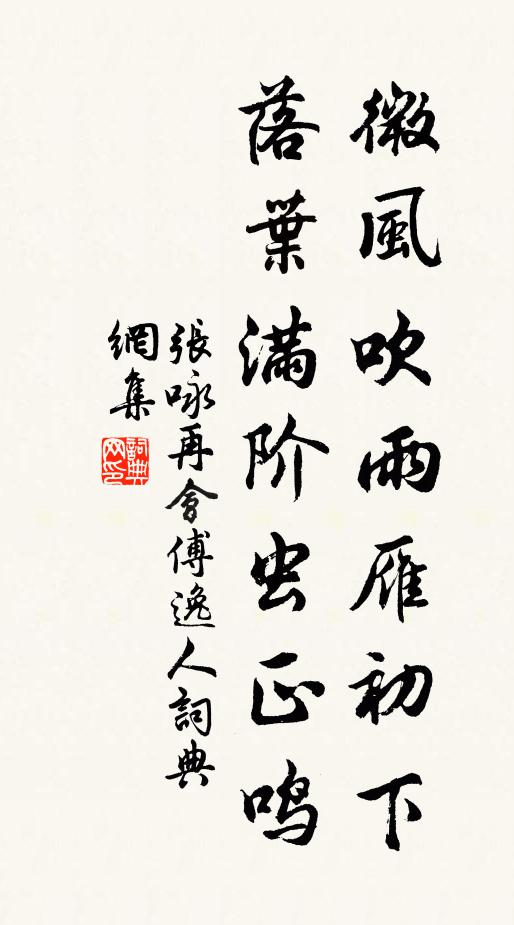 微風吹雨雁初下
落葉滿阶虫正鸣
張咏再會傅逸人詞典
網集
詞典
网印